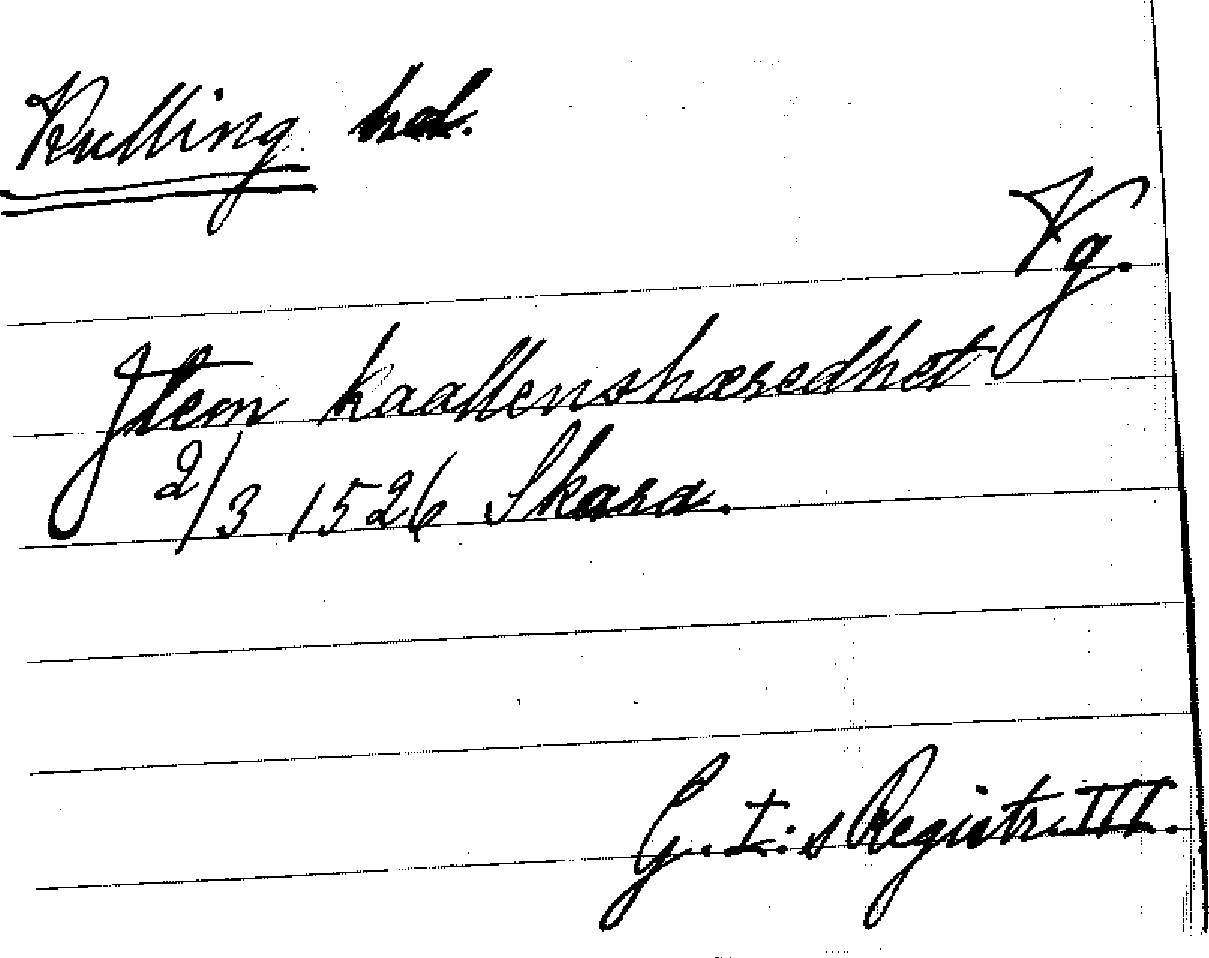 Kulling hd.
Vg.
Jtem kaallenshæredhet
2/3 1526 Skara.
G. I:s Registr. III.